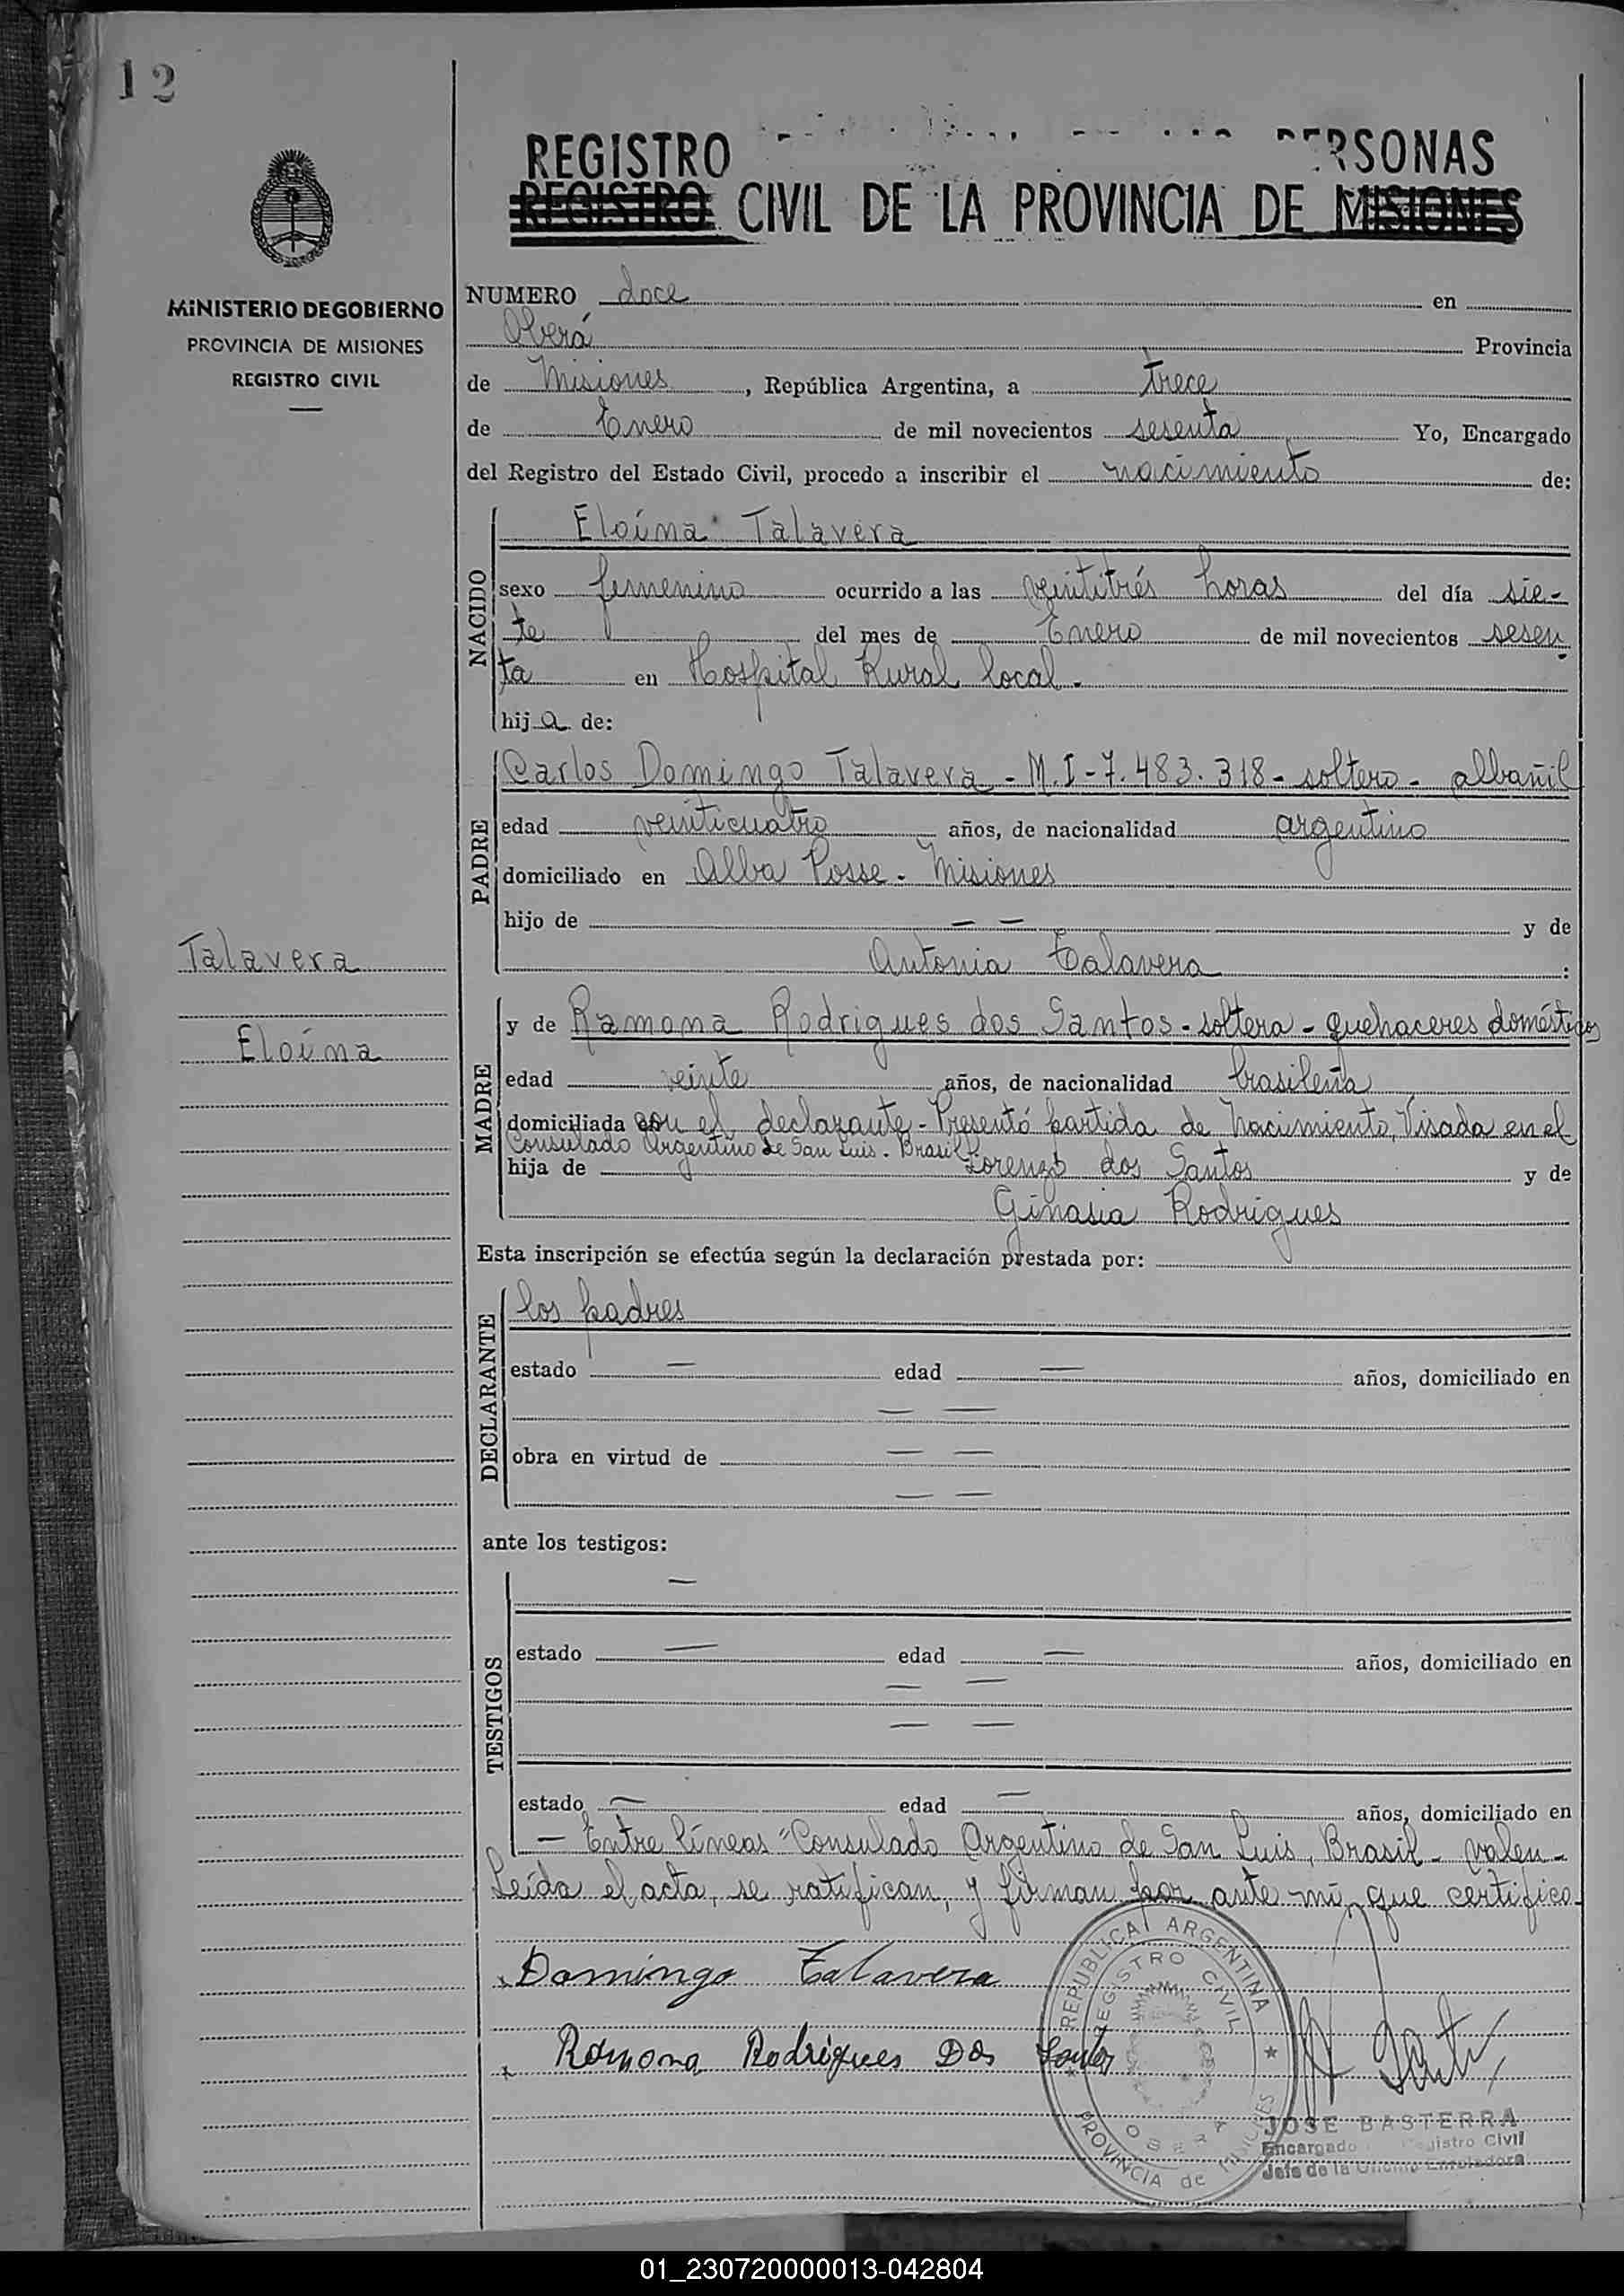 12
REGISTRO PERSONAS
REGISTRO CIVIL DE LA PROVINCIA DE MISIONES
MINISTERIO DE GOBIERNO
PROVINCIA DE MISIONES
REGISTRO CIVIL
NUMERO doce en
Oberá Provincia
de Misiones, República Argentina, a trece
de Enero de mil novecientos sesenta Yo, Encargado
del Registro del Estado Civil, procedo a inscribir el nacimiento de:
NACIDO
Eloína Talavera
sexo femenino ocurrido a las veintitrés horas del día sie-
te del mes de Enero de mil novecientos sesen
ta en Hospital Rural local.
hija de:
PADRE
Carlos Domingo Talavera - M.I - 7.483.318 - soltero - albañil
edad veinticuatro años, de nacionalidad argentino
domiciliado en Alba Posse - Misiones
hijo de — — y de
Antonia Talavera :
Talavera
Eloína
MADRE
y de Ramona Rodrigues dos Santos - soltera - quehaceres domésticos
edad veinte años, de nacionalidad brasileña
domiciliada con el declarante - Presentó partida de nacimiento, Visada en el
Consulado Argentino de San Luis - Brasil
hija de Lorenzo dos Santos y de
Ginasia Rodrigues
Esta inscripción se efectúa según la declaración prestada por:
DECLARANTE
los padres
estado — edad — años, domiciliado en
— —
obra en virtud de — —
— —
ante los testigos:
TESTIGOS
—
estado — edad — años, domiciliado en
— —
— —
estado — edad — años, domiciliado en
— Entre líneas "Consulado Argentino de San Luis, Brasil - valen -
Leída el acta, se ratifican, y firman por ante mí, que certifico.
x Domingo Talavera
x Ramona Rodrigues Dos Santos
REPUBLICA ARGENTINA
REGISTRO CIVIL
OBERA
PROVINCIA de MISIONES
JOSE BASTERRA
Encargado Registro Civil
Jefe de la Oficina Enroladora
01_230720000013-042804